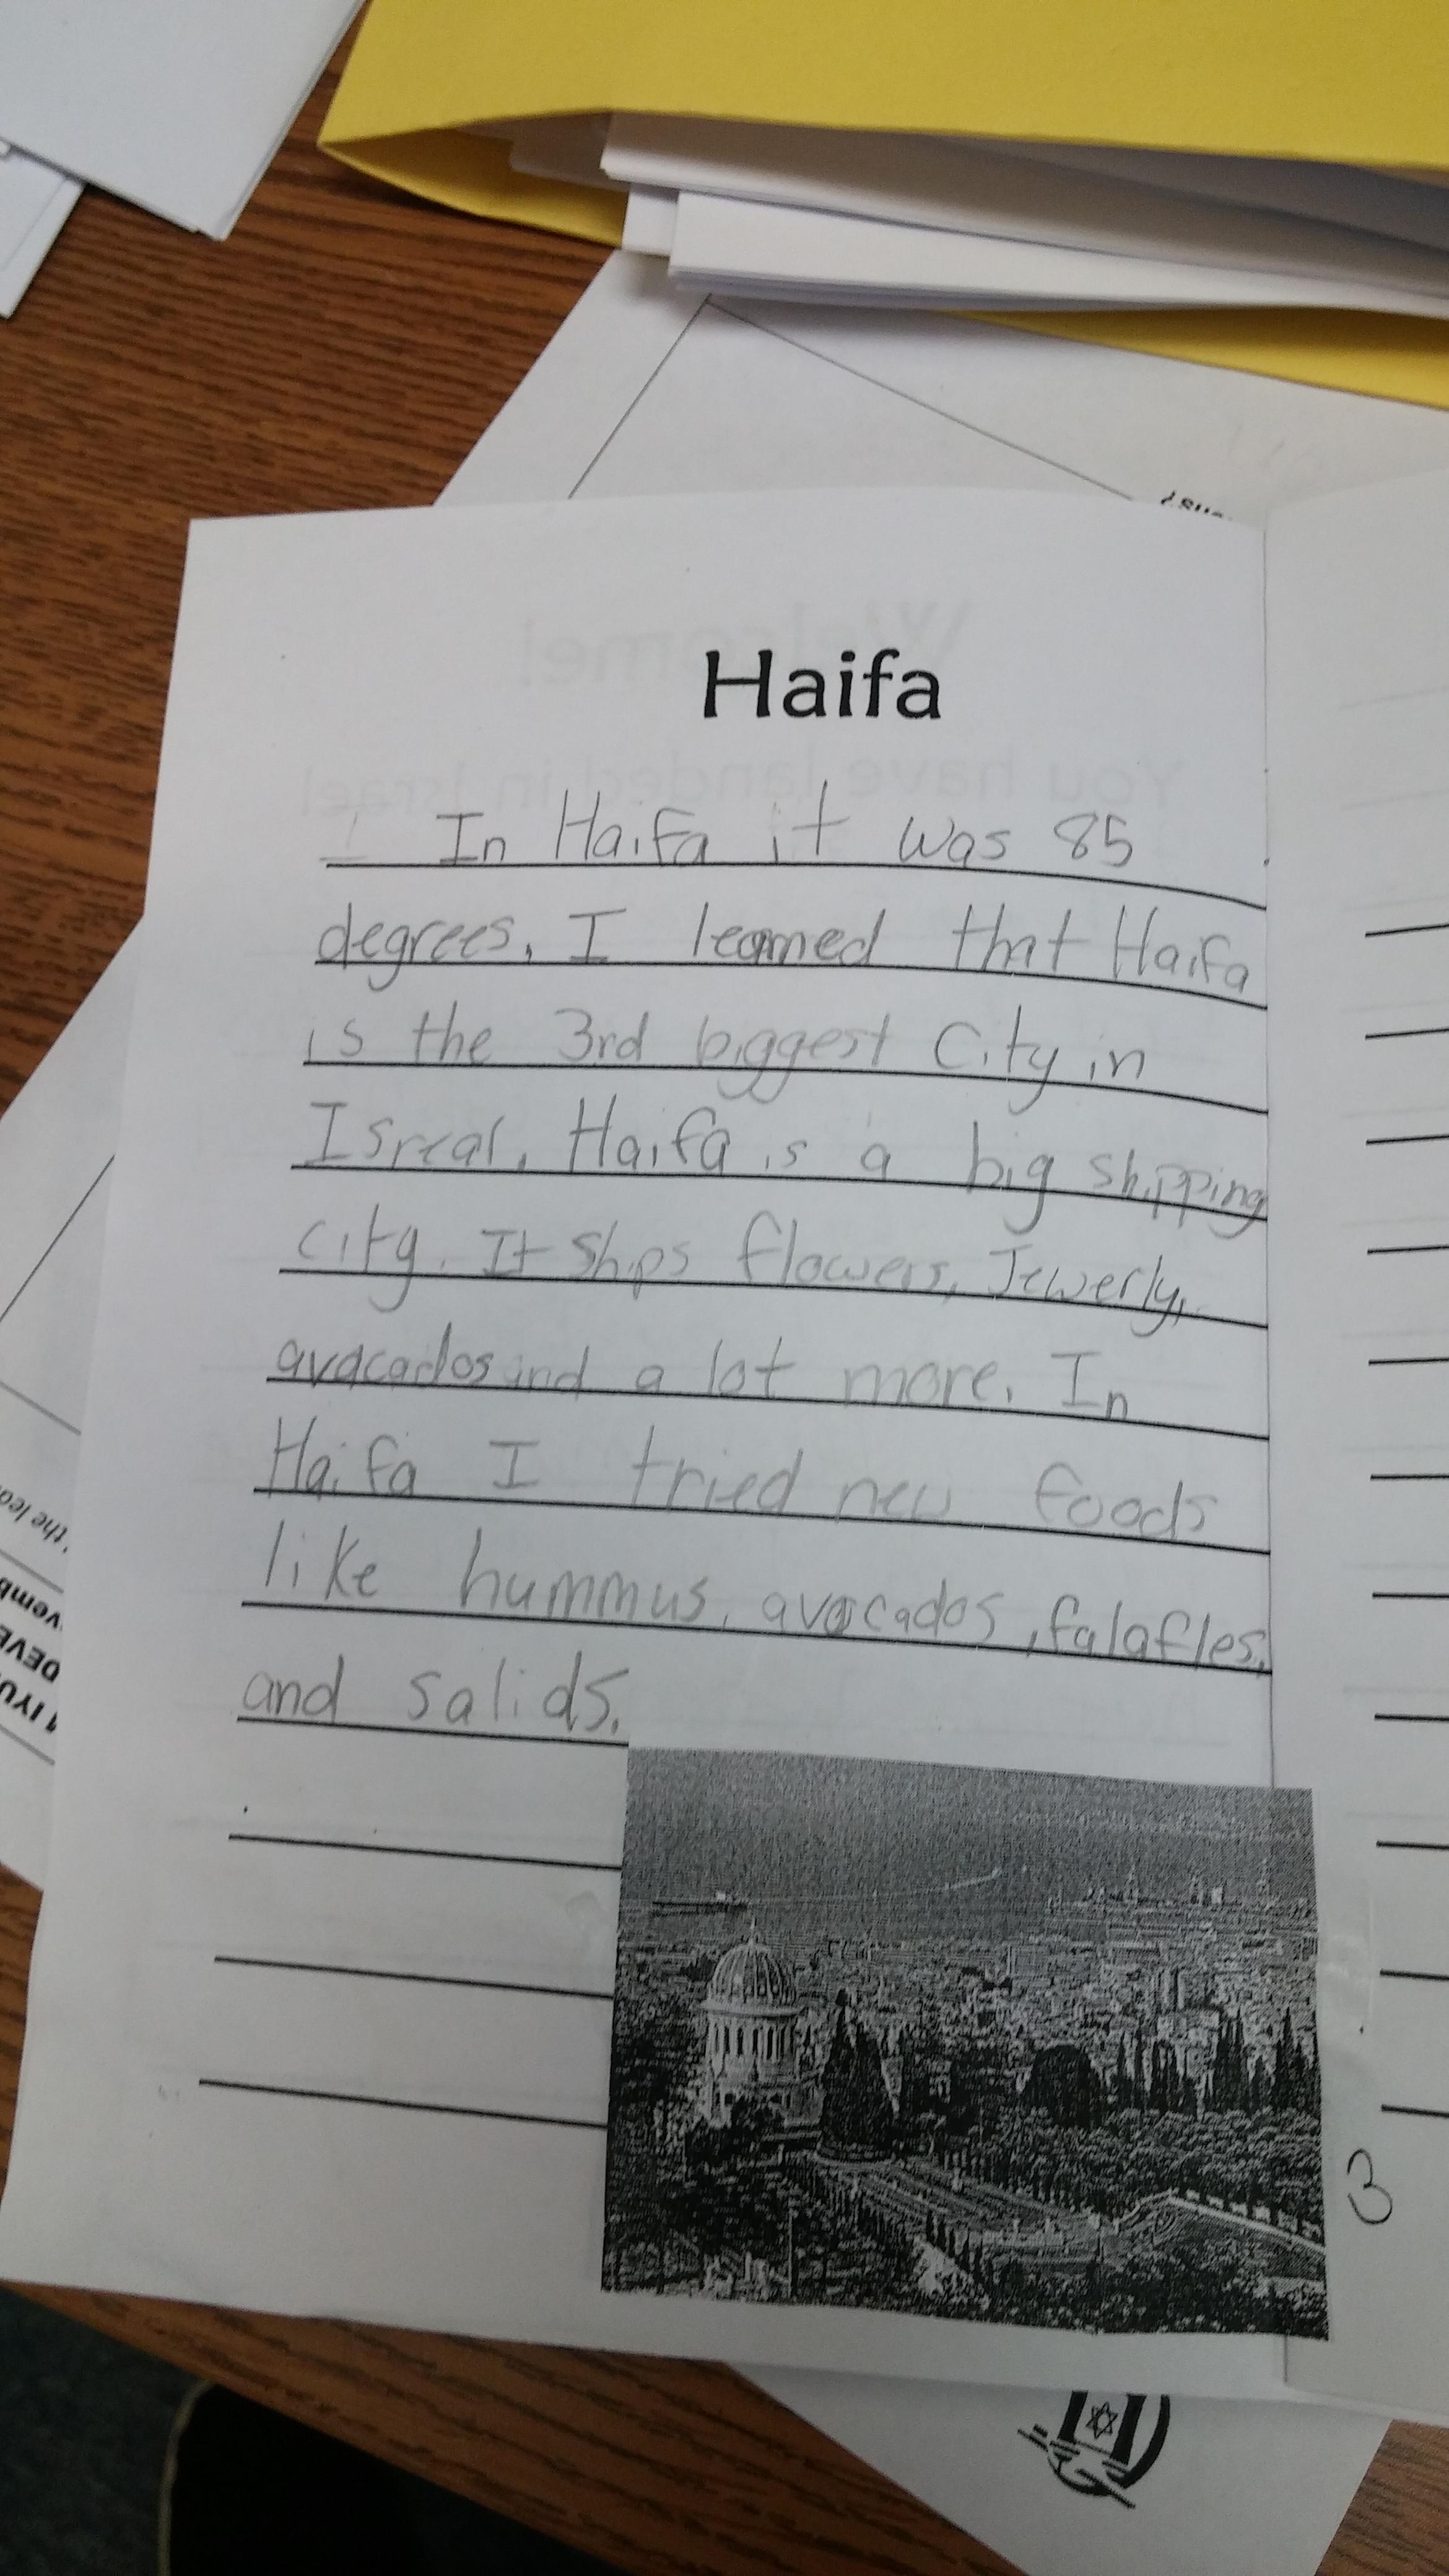 Haifa
In Haifa it was 85
degrees. I learned that Haifa
is the 3rd biggest city in
Isreal. Haifa is a big shipping
city. It ships flowers, Jewerly,
avacados and a lot more. In
Haifa I tried new foods
like hummus, avocados, falafles,
and salids.
3
Welcome!
You have landed in Israel
the lea
vemb
DEVE